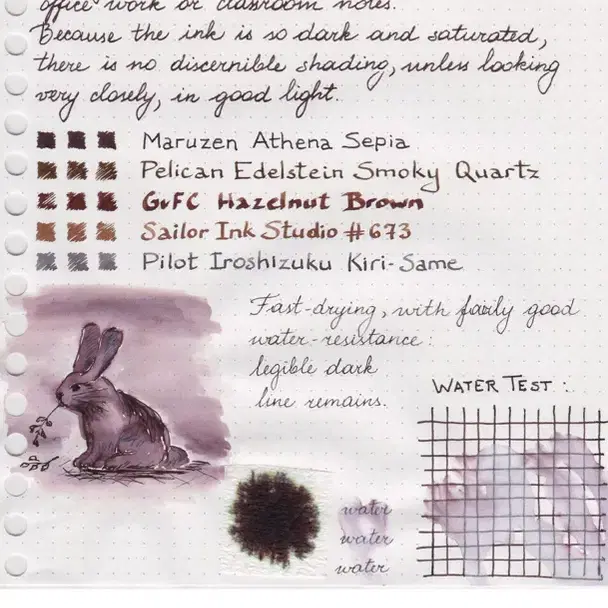 office work or classroom notes.
Because the ink is so dark and saturated,
there is no discernible shading, unless looking
very closely, in good light.
Maruzen Athena Sepia
Pelican Edelstein Smoky Quartz
GvFC Hazelnut Brown
Sailor Ink Studio #673
Pilot Iroshizuku Kiri-Same
Fast-drying, with fairly good
water-resistance:
legible dark
line remains.
WATER TEST:
water
water
water